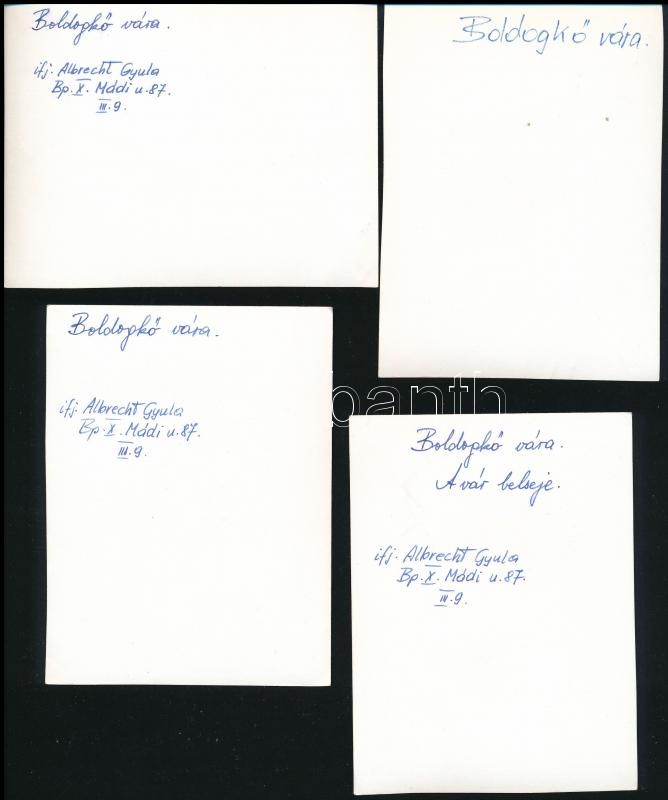 Boldogkő vára.
ifj. Albrecht Gyula
Bp. X. Mádi u. 87.
III. 9.
Boldogkő vára.
Boldogkő vára.
ifj. Albrecht Gyula
Bp. X. Mádi u. 87.
III. 9.
Boldogkő vára.
A vár belseje.
ifj. Albrecht Gyula
Bp. X. Mádi u. 87.
III. 9.